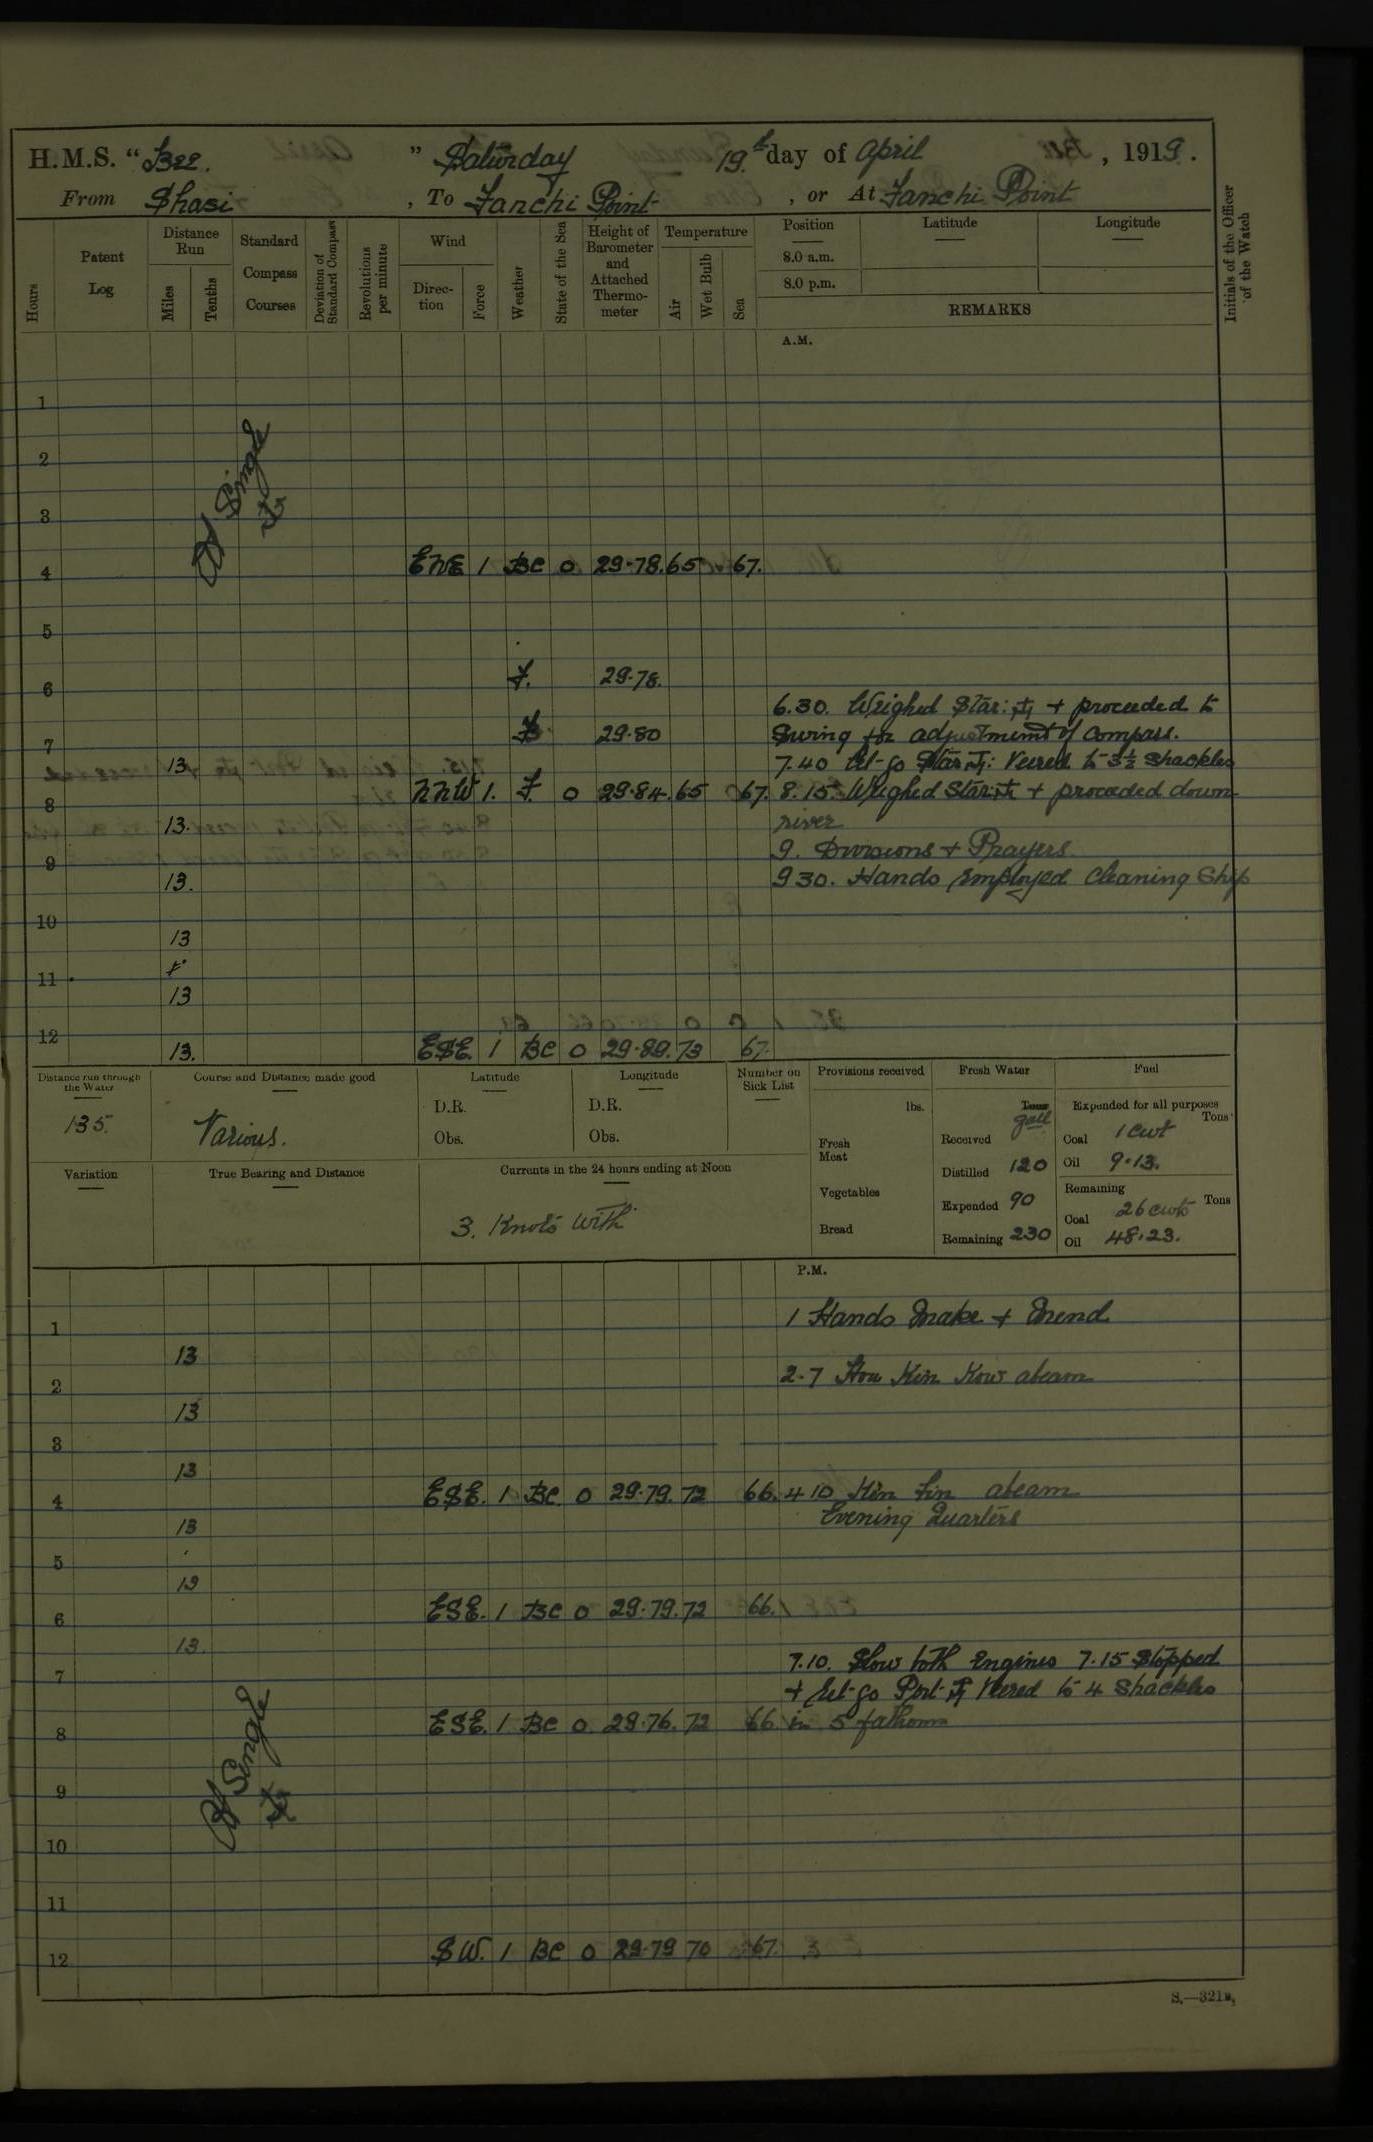 H.M.S. "Bee." Saturday 19th day of April, 1919.
From Shasi, To Fanchi Point, or At Fanchi Point
Hours
Patent Log
Distance Run
Miles
Tenths
Standard Compass Courses
Deviation of Standard Compass
Revolutions per minute
Wind
Direction
Force
Weather
State of the Sea
Height of Barometer and Attached Thermometer
Temperature
Air
Wet Bulb
Sea
Position
8.0 a.m.
8.0 p.m.
Latitude
Longitude
REMARKS
Initials of the Officer of the Watch
A.M.
1
2
3
At Single
4 ENE 1 BC 0 29.78. 65 67.
5
6 F. 29.78.
6.30. Weighed Star: ⚓ + proceeded to
7 29.80 Swing for adjustment of Compass.
13 7.40 Let go Star ⚓: Veered to 3½ Shackles
8 NNW 1. F. 0 29.84. 65 67. 8.15 Weighed Star: ⚓ + proceeded down
13. river
9 9. Divisions + Prayers.
13. 9.30. Hands employed Cleaning Ship
10
13
11
13
12 13. ESE. 1 BC 0 29.89. 73 67.
Distance run through the Water
135.
Course and Distance made good
Various.
Latitude
D.R.
Obs.
Longitude
D.R.
Obs.
Number on Sick List
Provisions received
lbs.
Fresh Meat
Vegetables
Bread
Fresh Water
Tons gall
Received
Distilled 120
Expended 90
Remaining 230
Fuel
Expended for all purposes
Tons
Coal 1 cwt
Oil 9.13.
Remaining
Tons
Coal 26 cwts
Oil 48.23.
Variation
True Bearing and Distance
Currents in the 24 hours ending at Noon
3. Knots with
P.M.
1 1 Hands Make + Mend
13
2 2.7 Kin Kow abeam
13
3
13
4 ESE. 1 BC. 0 29.79. 72 66. 4 10 Kin abeam
13 Evening Quarters
5
13
6 ESE. 1 BC 0 29.79. 72 66.
13.
7 7.10. Slow both Engines 7.15 Stopped
+ let go Port ⚓ Veered to 4 Shackles
8 ESE. 1 BC 0 29.76. 72 66 in 5 fathoms
At Single
9
10
11
12 SW. 1 BC 0 29.79 70 67.
S.—321B.